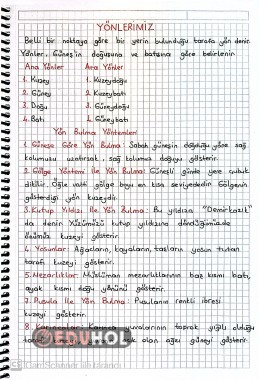 YÖNLERİMİZ
Belli bir noktaya göre bir yerin bulunduğu tarafa yön denir.
Yönler, Güneş'in doğuşuna ve batışına göre belirlenir.
Ana Yönler Ara Yönler
1. Kuzey 1. Kuzeydoğu
2. Güney 2. Kuzeybatı
3. Doğu 3. Güneydoğu
4. Batı 4. Güneybatı
Yön Bulma Yöntemleri
1. Güneşe Göre Yön Bulma: Sabah güneşin doğduğu yöne sağ
kolumuzu uzatırsak, sağ kolumuz doğuyu gösterir.
2. Gölge Yöntemi ile Yön Bulma: Güneşli günde yere çubuk
dikilir. Öğle vakti gölge boyu en kısa seviyededir. Gölgenin
gösterdiği yön kuzeydir.
3. Kutup Yıldızı ile Yön Bulma: Bu yıldıza "Demirkazık"
da denir. Yüzümüzü kutup yıldızına döndüğümüzde
önümüz kuzeyi gösterir.
4. Yosunlar: Ağaçların, kayaların, taşların yosun tutan
tarafı kuzeyi gösterir.
5. Mezarlıklar: Müslüman mezarlıklarının baş kısmı batı,
ayak kısmı doğu yönünü gösterir.
7. Pusula ile Yön Bulma: Pusulanın renkli ibresi
kuzeyi gösterir.
8. Karınca yuvalarının toprak yığılı olduğu
taraf ağzı güneyi gösterir.
EDUHOL